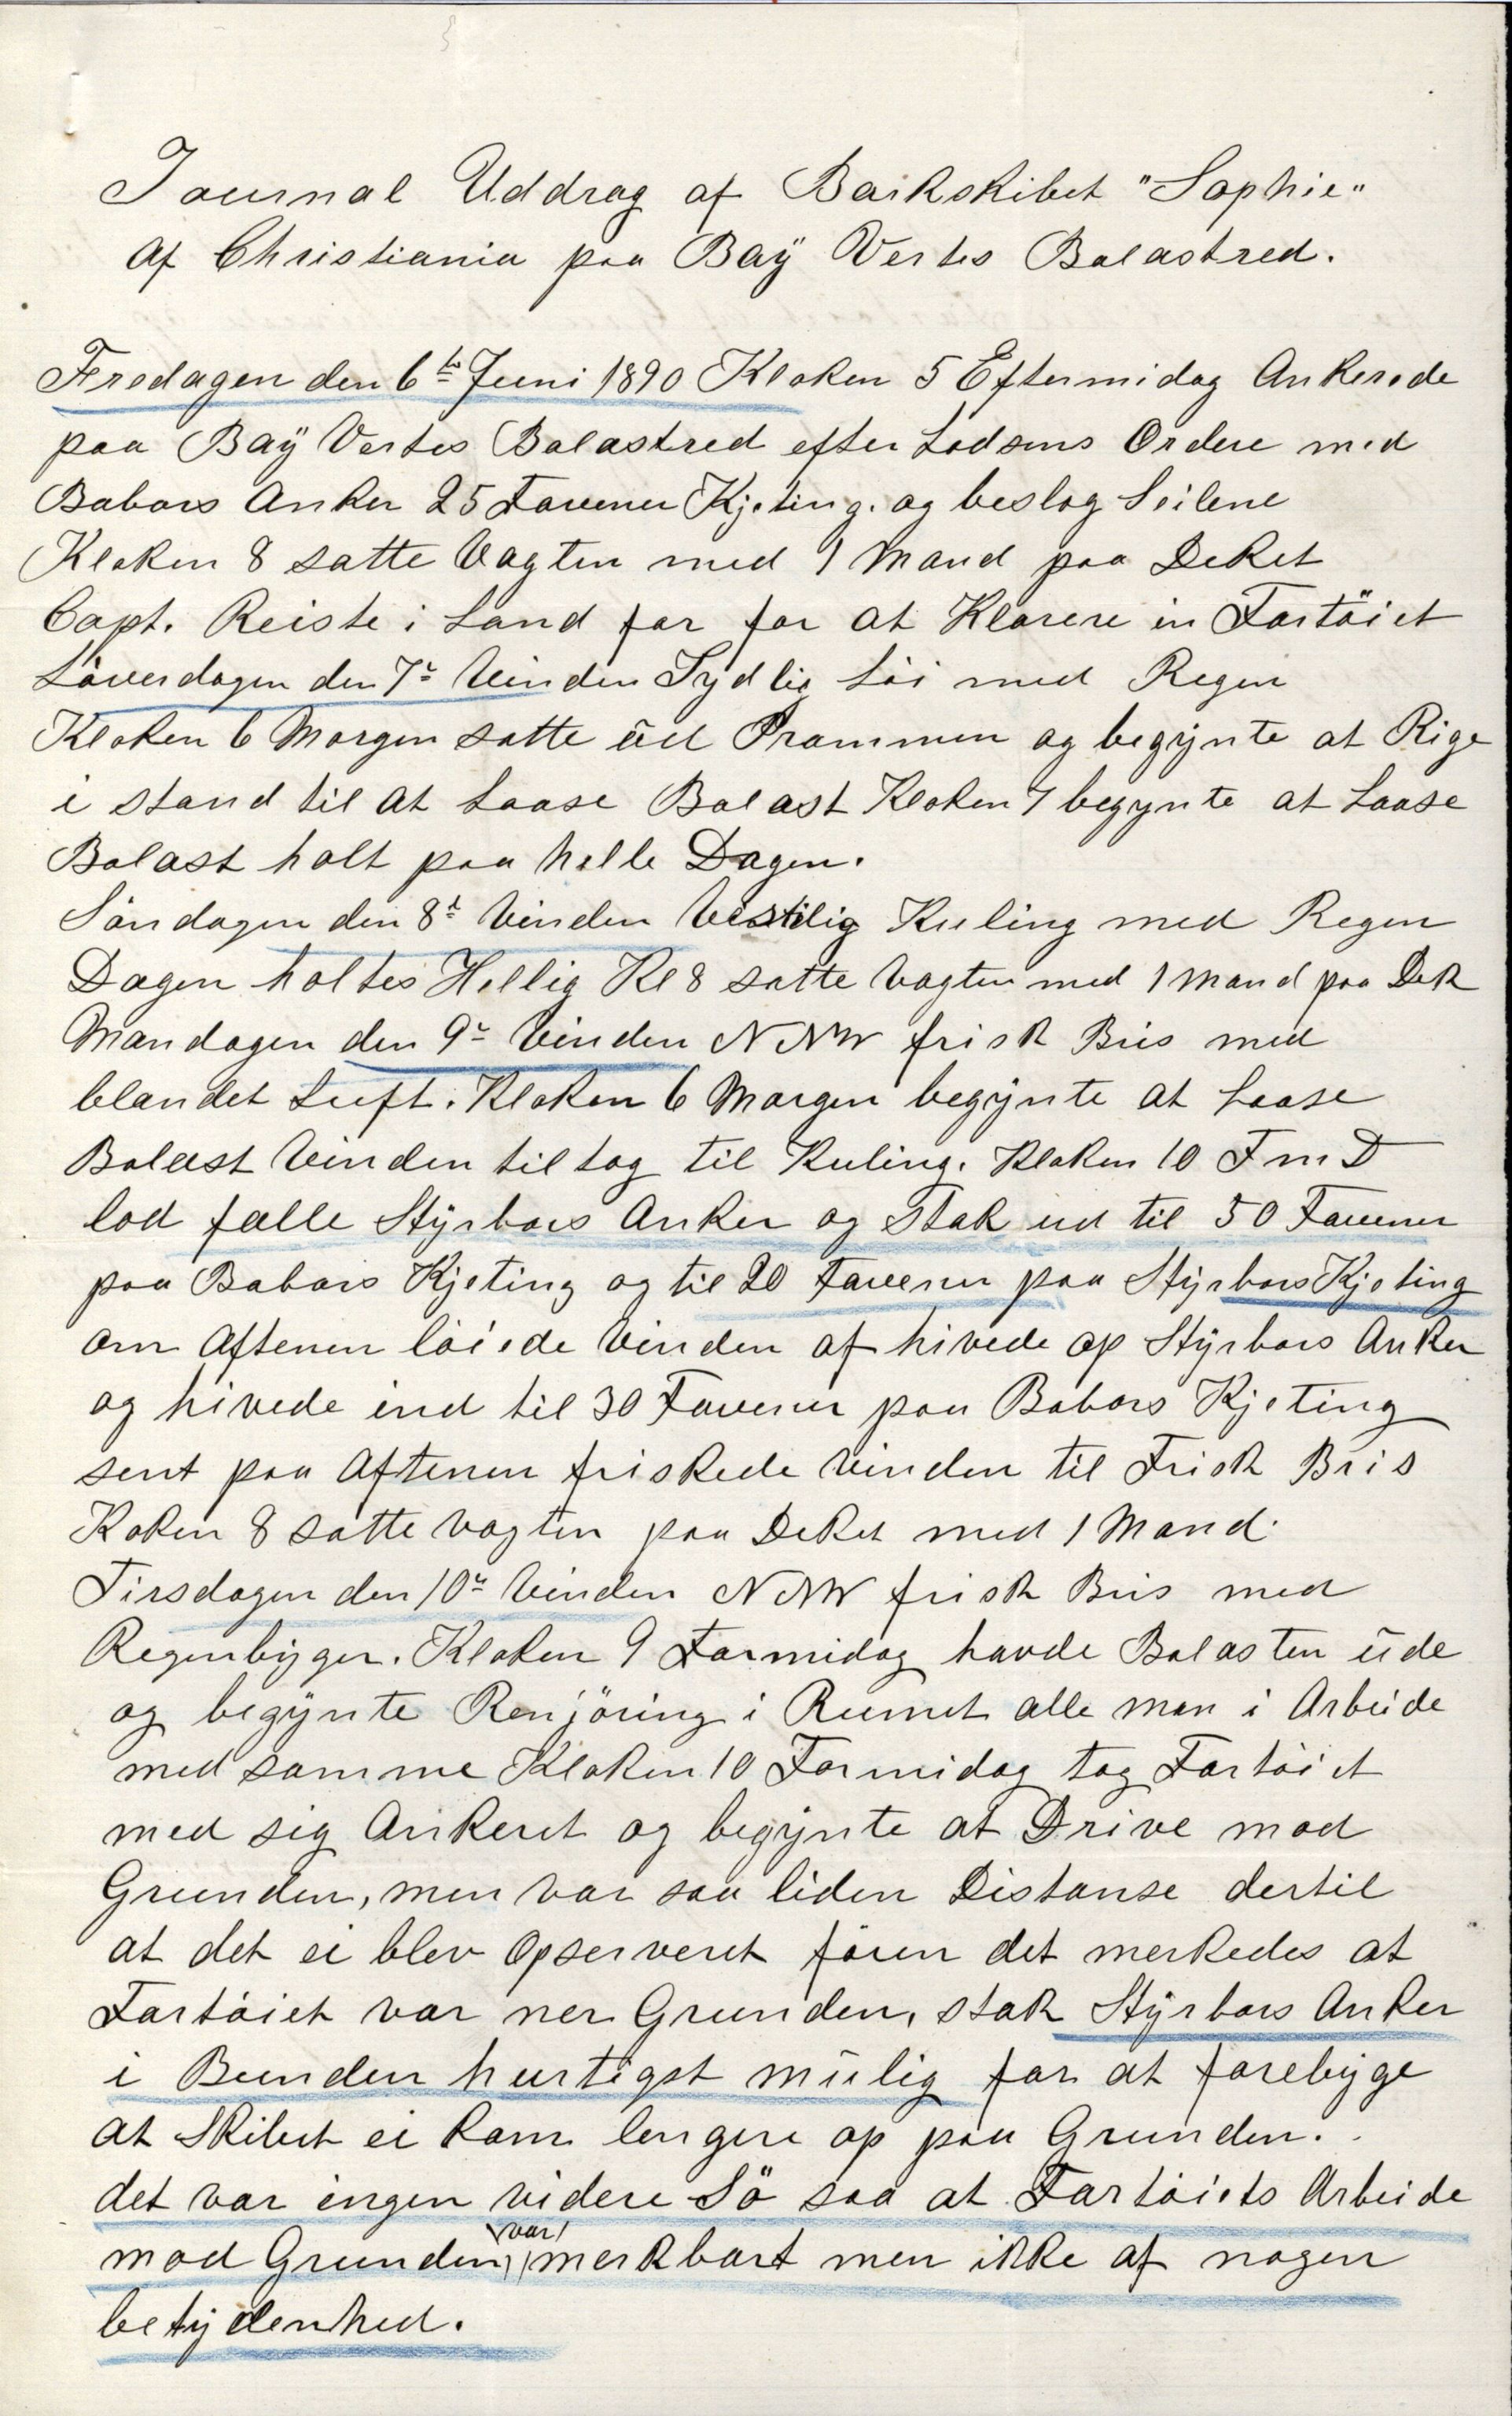 Journal Uddrag af Barkskibet "Sophie"
af Christiania paa Baÿ Vertes Balastred.
Fredagen den 6te Juni 1890 Kloken 5 Eftermidag Ankerede
paa Baÿ Vertes Balastred efter Lodsens Ordere med
Babors Anker 25 Favener Kjeting. og beslog Seilene
Kloken 8 satte Vagten med 1 Mand paa Deket
Capt. Reiste i Land for for at Klarere in Fartöiet
Löverdagen den 7de Vinden Sydlig Löi med Regen
Kloken 6 Morgen satte ud Prammen og begynte at Rige
i stand til at Laase Balast Kloken 7 begynte at Laase
Balast holt paa helle Dagen.
Söndagen den 8de Vinden Vestlig Kuling med Regen
Dagen holtes Hellig Kl 8 satte Vagten med 1 Mand paa Dek
Mandagen den 9de Vinden NNW frisk Bris med
blandet Luft. Kloken 6 Morgen begynte at Laase
Balast Vinden tiltog til Kuling. Kloken 10 FmD
lod fælle Styrbors Anker og Stak ud til 50 Favener
paa Babors Kjeting og til 20 Favener paa Styrbors Kjeting
om Aftenen löiede Vinden af hivede op Styrbors Anker
og hivede ind til 30 Favener paa Babors Kjeting
sent paa Aftenen friskede Vinden til Frisk Bris
Koken 8 satte vagten paa Deket med 1 Mand.
Tirsdagen den 10de Vinden NNW frisk Bris med
Regenbyger. Kloken 9 Formidag havde Balasten ude
og begynte Renjöring i Rumet alle man i Arbeide
med samme Kloken 10 Formidag tog Fartöiet
med sig Ankeret og begynte at Drive mod
Grunden, men var saa liden Distanse dertil
at det ei blev Opserveret fören det merkedes at
Fartöiet var ner Grunden, stak Styrbors Anker
i Bunden hurtigst mulig for at forebyge
at Skibet ei kom lengere op paa Grunden.
det var ingen videre Sö saa at Fartöiets Arbeide
mod Grunden var merkbart men ikke af nogen
betydenhed.